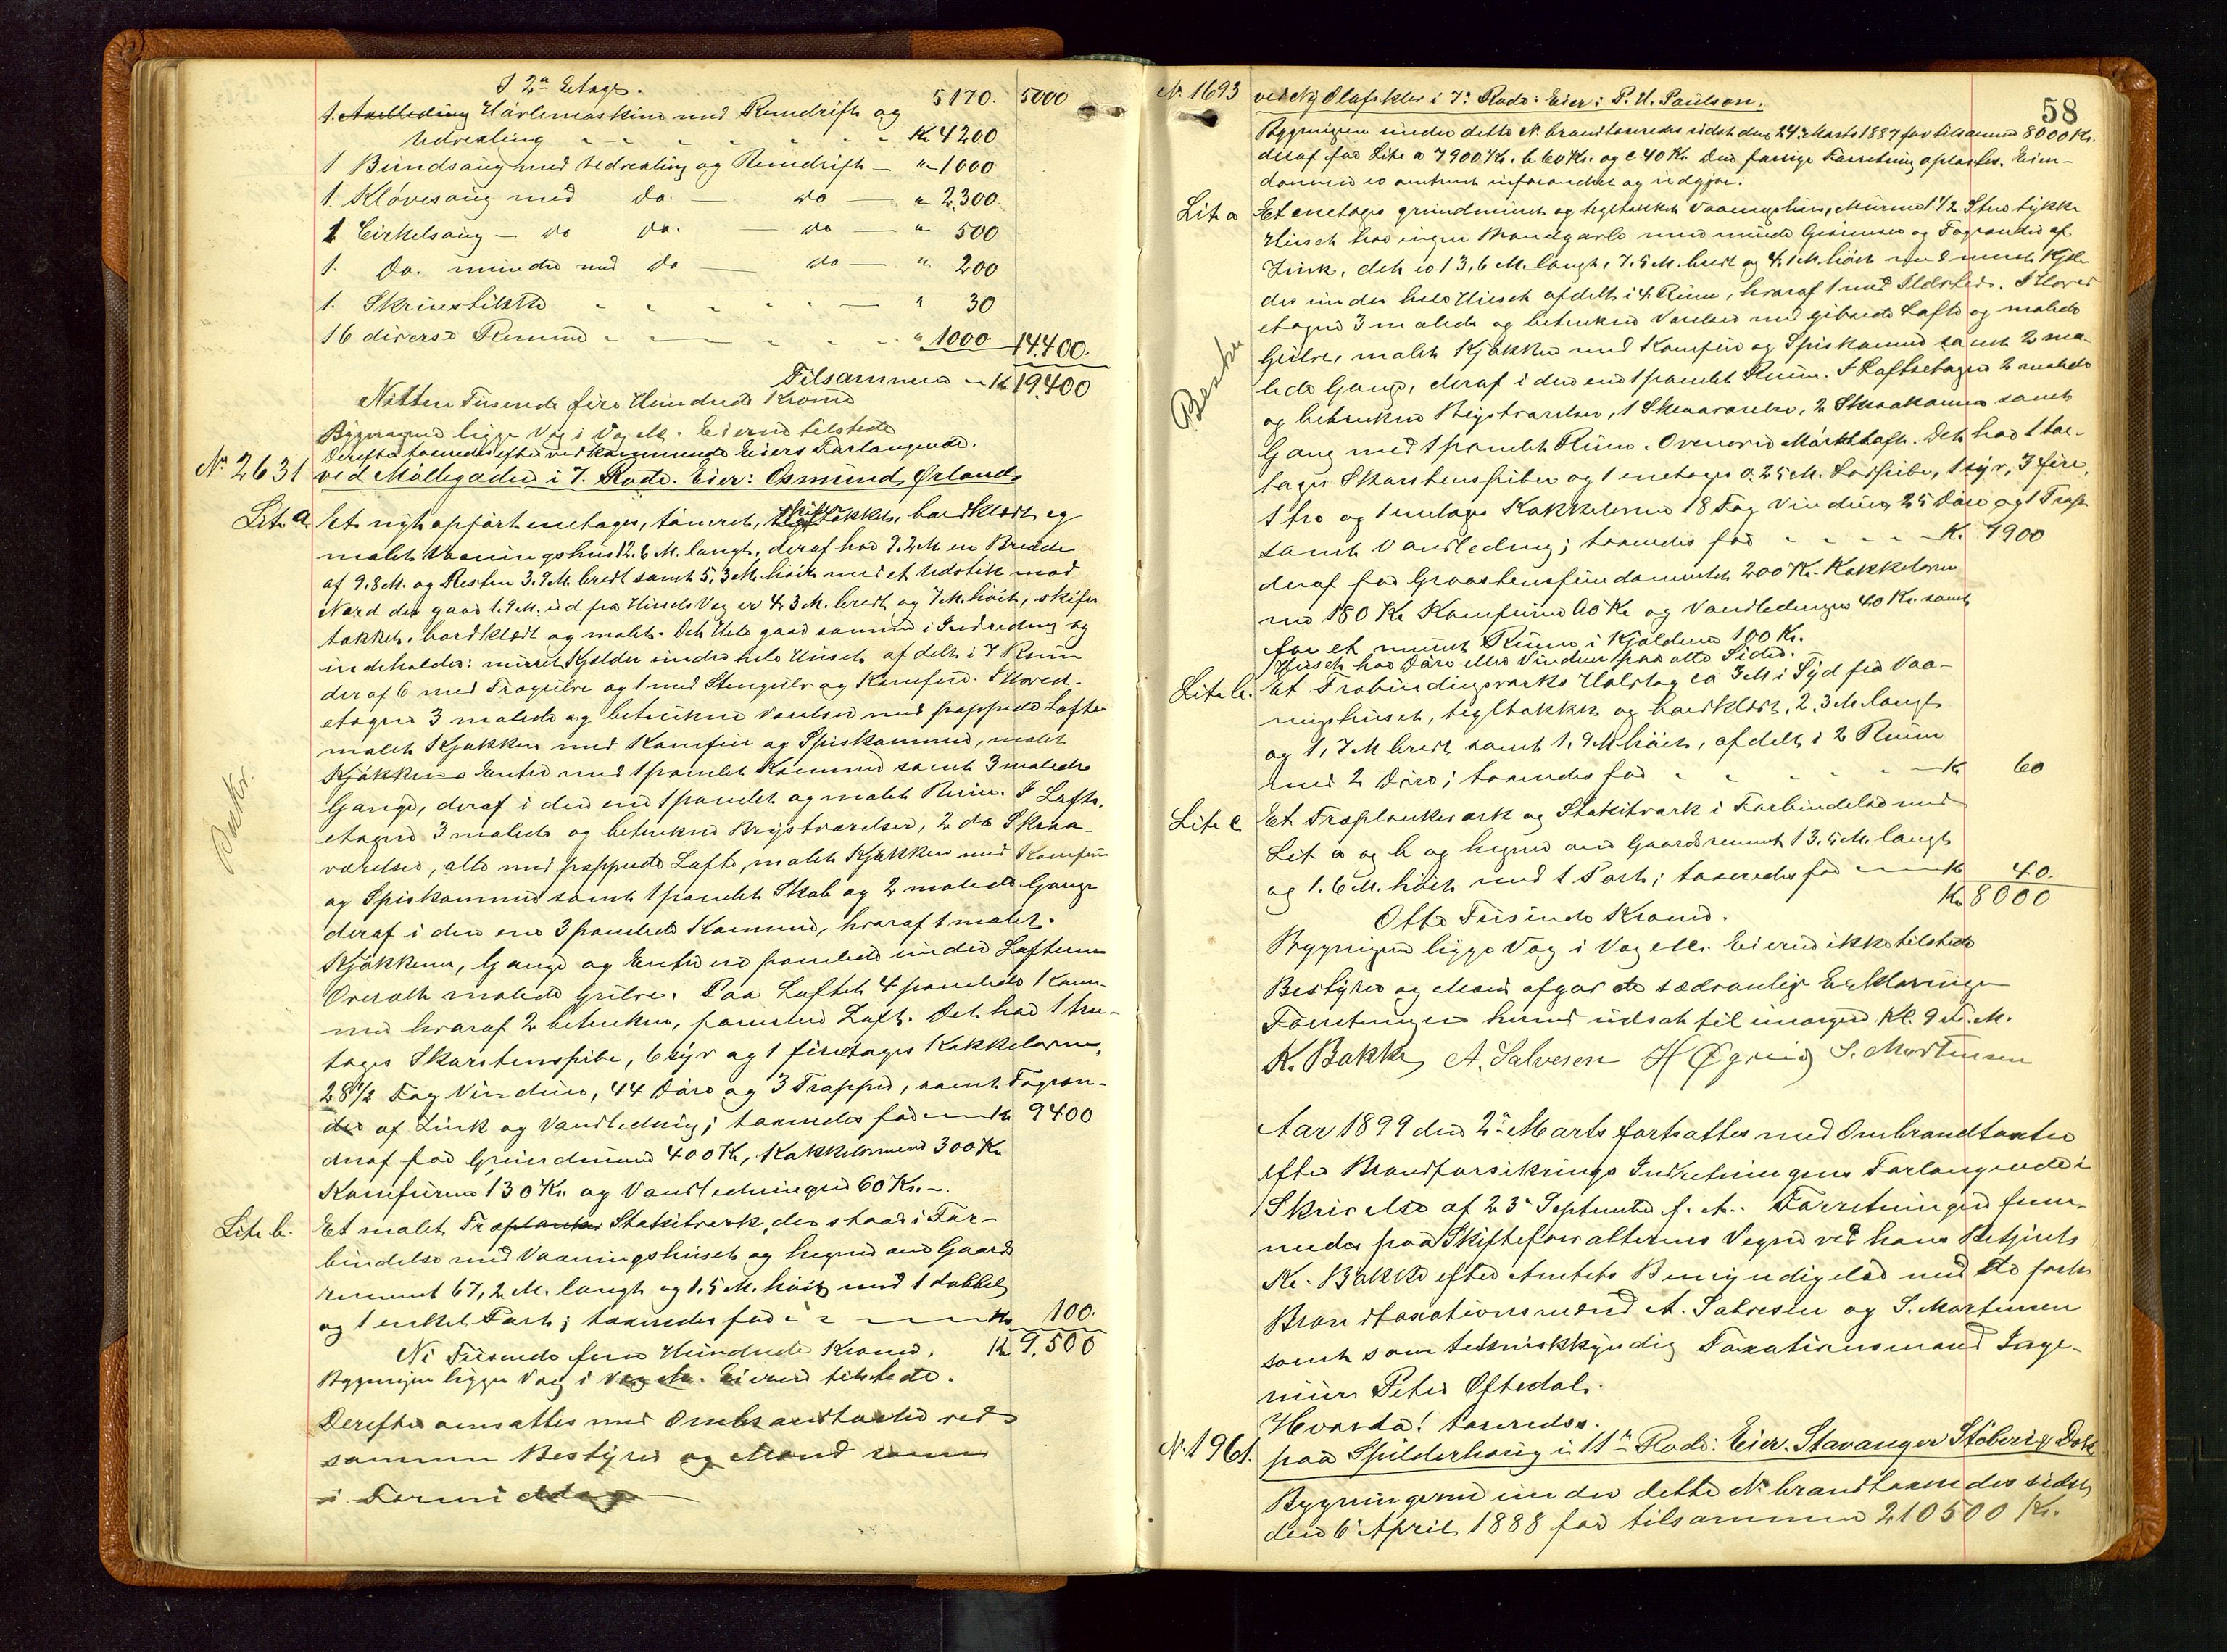 I 2n Etage.
1. Axelledning Hövlemaskine med Remdrift og 5170. 5000
Udvexling - - - - - - - Kr 4200
1 Baandsaug med Udvexling og Remdrift - " 1000
1. Klövesaug med Do. - do - " 2.300.
1 Cirkelsaug - do do. - do - " 500
1. Do. mindre med do - do - " 200
1. Skruestikke - - - - - " 30
16 diverse Remme - - - - - " 1000 14.400.
Tilsammen - Kr 19.400
Nitten Tusende fire Hundrede Kroner
Bygningerne ligge Væg i Væg &c. Eieren tilstede
Derefter taxeredes efter vedkommende Eiers Forlangende.
No 2631 ved Möllegaden i 7. Rode. Eier: Osmund Ørland
Lit. a. Et nyt opfört enetages, tömret, tegl skifer tækket, bordklædt og
malet Vaaningshus 12.6 M. langt, deraf har 9.2 M en Bredde
af 9.8 M. og Resten 3.9 M. bredt samt 5.3 M. höit med et Udstik mod
Nord der gaar 1.9 M. ud fra Husets Væg er 4.3 M. bredt og 7 M. höit, skifer
tækket, bordklædt og malet. Det Hele gaar sammen i Indredning og
indeholder: muret Kjelder under hele Huset afdelt i 7 Rum
deraf 6 med Trægulve og 1 med Stengulv og Komfur. I Hoved-
etagen 3 malede og betrukne Værelser med pappede Lofte
malet Kjökken med Komfur og Spiskammer, malet
Kjökkens Entre med 1 panelet Kammer samt 3 malede
Gange, deraf i den ene 1 panelet og malet Rum. I Lofts-
etagen 3 malede og betrukne Brystværelser, 2 do Skraa-
værelser, alle med pappede Lofte, malet Kjökken med Komfur
og Spiskammer samt 1 panelet Skab og 2 malede Gange
deraf i den ene 3 panelede Kammer, hvoraf 1 malet.
Kjökkener, Gange og Entre ere panelede under Lofterne
Overalt malede Gulve. Paa Loftet 4 panelede Kam-
mer hvoraf 2 betrukne, panelede Loft. Det har 1 tre-
tages Skorstenspibe, 6 syv og 1 fireetages Kakkelovne,
28 1/2 Fag Vinduer, 44 Döre og 3 Trapper, samt Tagren-
der af Zink og Vandledning; taxeredes for - - Kr 9400
deraf for Grundmuren 400 Kr, Kakkelovnene 300 Kr
Komfurene 130 Kr. og Vandledningen 60 Kr. -.
Lit. b. Et malet Træplanke Stakitværk, der staar i For-
bindelse med Vaaningshuset og hegner om Gaards
rummet 67,2 M. langt og 1.5 M. höit med 1 dobbelt
og 1 enkel Port; taxeredes for - - - Kr 100.
Ni Tusende fem Hundrede Kroner. Kr 9.500
Bygningen ligger Væg i Væg &c. Eieren tilstede.
Derefter ansattes med Ombrandtaxter ved
samme Bestyrer og Mænd som
i Formiddag
Beskr.
58
No 1693 ved Ny Olafsklev i 7n Rode: Eier: P. H. Paulson.
Bygningen under dette No brandtaxeredes sidst den 24n Marts 1887 for tilsammen 8000 Kr.
deraf for Lite a 7900 Kr. b 60 Kr. og c 40 Kr. Den forrige Forretning oplæstes. Eien-
dommen er omtrent uforandret og udgjör:
Lit. a Et enetages grundmuret og tegltækket Vaaningshus, Murene 1 1/2 Sten tykke
Huset har ingen Brandgavle med murede Gesimser og Tagrender af
Zink, det er 13,6 M. langt, 7.5 M. bredt og 4.1 M. höit med muret Kjel-
der under hele Huset afdelt i 4 Rum, hvoraf 1 med Ildsted. I Hoved
etagen 3 malede og betrukne Værelser med gibsede Lofte og malede
Gulve, malet Kjökken med Komfur og Spiskammer samt 2 ma-
lede Gange, deraf i den ene 1 panelet Rum. I Loftsetagen 2 malede
og betrukne Brystværelser, 1 Skraaværelse, 2 Skraakammer samt
Gang med 1 panelet Rum. Ovenover Mörkloft. Det har 1 toe-
tages Skorstenspiber og 1 enetages 0.25 M. Lodpibe, 1 syv, 3 fire,
1 tre og 1 enetages Kakkelovne 18 Fag Vinduer, 25 Döre og 1 Trap
samt Vandledning; taxeredes for - - - - Kr. 7900
deraf for Graastensfundamentet 200 Kr. Kakkelovne
ne 180 Kr Komfurene 60 Kr og Vandledningen 40 Kr. samt
for et muret Rum i Kjelderen 100 Kr.
Huset har Döre eller Vinduer paa alle Sider.
Lite b. Et Træbindingsværks Halvtag ca 3 M i Syd fra Vaa-
ningshuset, tegltækket og bordklædt, 2.3 M. langt
og 1,7 M bredt samt 1.9 M höit, afdelt i 2 Rum
med 2 Döre; taxeredes for - - - - Kr 60
Lite c Et Træplankeværk og Stakitværk i Forbindelse med
Lit a og b og hegner om Gaardsrummet 13.5 M. langt
og 1.6 M. höit med 1 Port; taxeredes for - - Kr 40.
Kr 8000
Otte Tusinde Kroner.
Bygningen ligger Væg i Væg &c. Eieren ikke tilstede
Bestyrer og Mænd afgav de sædvanlige Erklæringer
Forretningen herved udsat til imorgen Kl. 9 F. M.
K. Bakke A. Salvesen H Øgreid S. Mortensen
Aar 1899 den 2n Marts fortsattes med Ombrandtaxter
efter Brandforsikrings Indretningens Forlangende i
Skrivelse af 23n September f. A. Forretningen frem-
medes paa Skifteforvalterens Vegne ved hans Betjent
Kr. Bakke efter Amtets Bemyndigelse med de faste
Brandtaxationsmænd A. Salvesen og S. Mortensen
samt som tekniskkyndig Taxationsmand Inge-
niör Peter Oftedal.
Hvorda! taxeredes.
No 1961. paa Spilderhaug i 11n Rode: Eier. Stavanger Stöberi & Dok
Bygningerne under dette No brandtaxeredes sidst
den 6n April 1888 for tilsammen 210500 Kr.
Beskr